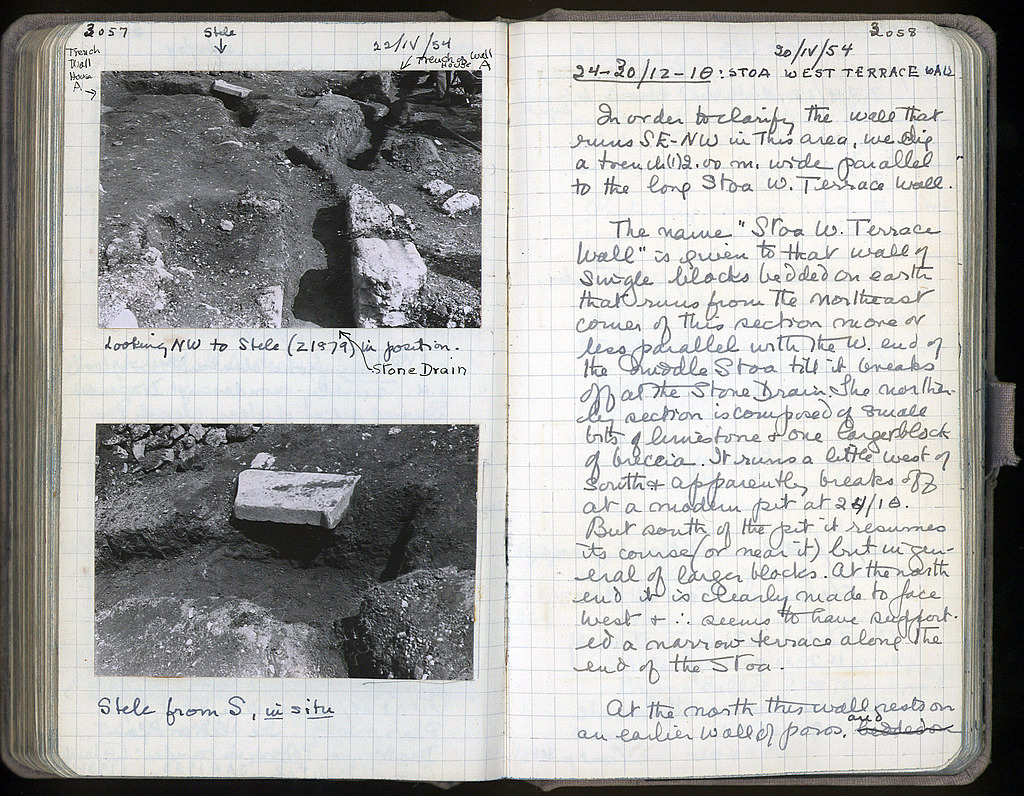 3057
Stele
22/IV/54
Trench
Wall
House
A
Trench or Wall
House A
Looking NW to Stele (Z1879) in position.
Stone Drain
Stele from S, in situ
3058
20/IV/54
24-30/12-18: STOA WEST TERRACE WALL
In order to clarify the wall that
runs SE-NW in this area, we dig
a trench (1) 2.00 m. wide parallel
to the long Stoa W. Terrace Wall.
The name "Stoa W. Terrace
Wall" is given to that wall of
single blocks bedded on earth
that runs from the northeast
corner of this section more or
less parallel with the W. end of
the Middle Stoa till it breaks
off at the Stone Drain. The north-
ly section is composed of small
bits of limestone + one larger block
of breccia. It runs a little west of
South + apparently breaks off
at a modern pit at 24/18.
But south of the pit it resumes
its course (or near it) but in gen-
eral of larger blocks. At the north
end it is clearly made to face
west + ∴ seems to have support-
ed a narrow terrace along the
end of the Stoa.
At the north this wall rests on
an earlier wall of poros, and bedded on